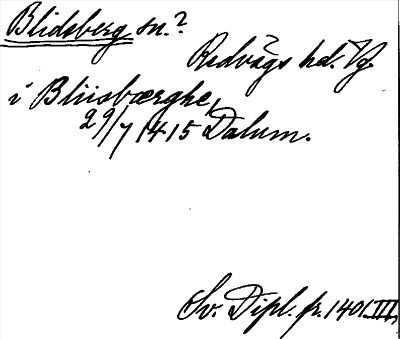 Blidsberg sn.?
Redvägs hd. Vg.
i Bliisbærghe,
29/7 1415 Dalum.
Sv. Dipl. fr. 1401 III,